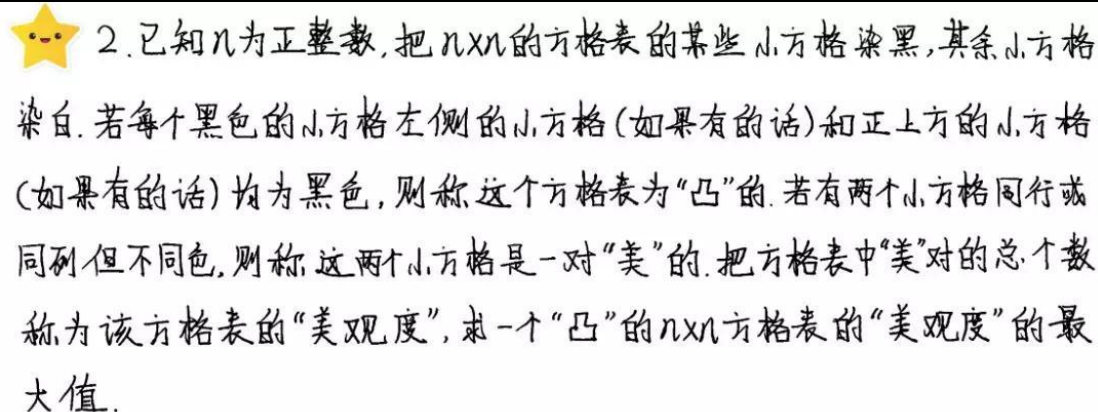 2.已知n为正整数,把n×n的方格表的某些小方格染黑,其余小方格
染白.若每个黑色的小方格左侧的小方格(如果有的话)和正上方的小方格
(如果有的话)均为黑色,则称这个方格表为“凸”的.若有两个小方格同行或
同列但不同色,则称这两个小方格是一对“美”的.把方格表中“美”对的总个数
称为该方格表的“美观度”,求一个“凸”的n×n方格表的“美观度”的最
大值.